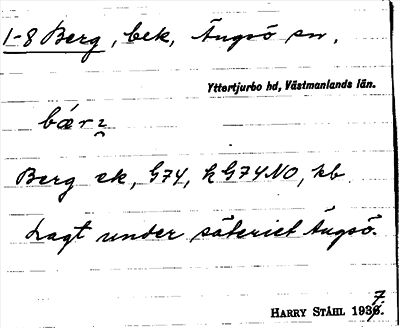 1-8 Berg, bek, Ängsö sn.
Yttertjurbo hd, Västmanlands län.
bær₂
Berg ek, G74, k G74NO, kb
Lagt under säteriet Ängsö.
HARRY STÅHL 1937.